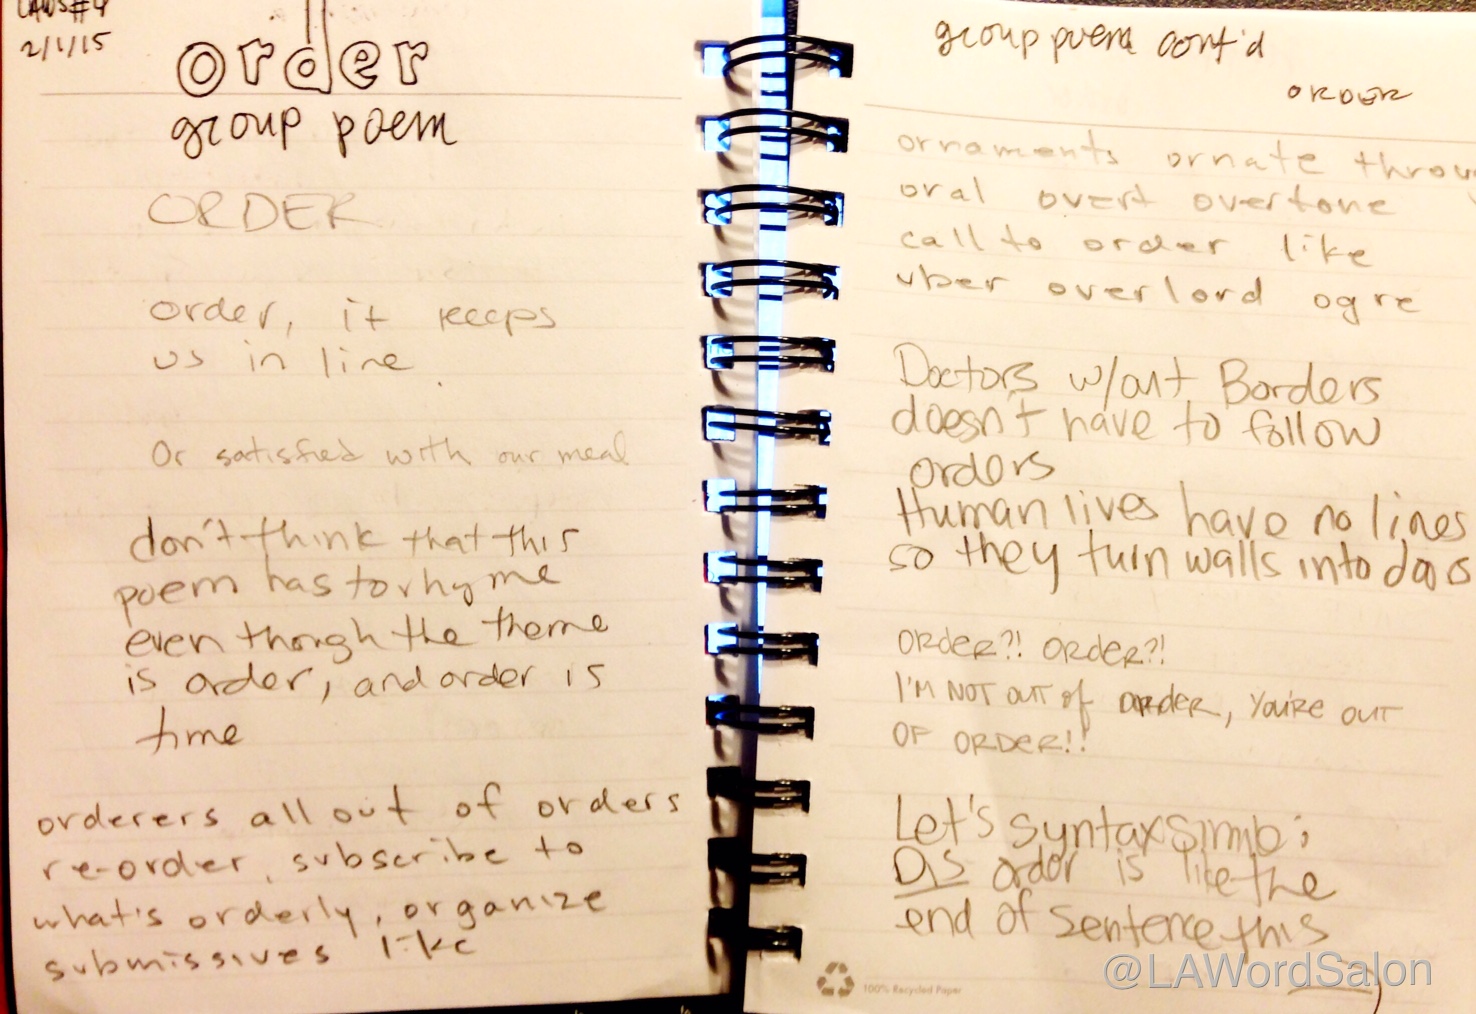 LAWS#4
2/1/15
order
group poem
ORDER
order, it keeps
us in line.
Or satisfied with our meal
don't think that this
poem has to rhyme
even though the theme
is order, and order is
time
orderers all out of orders
re-order, subscribe to
what's orderly, organize
submissives like
group poem cont'd
ORDER
ornaments ornate throu
oral overt overtone
call to order like
uber overlord ogre
Doctors w/out Borders
doesn't have to follow
orders
Human lives have no lines
so they turn walls into doors
ORDER?! ORDER?!
I'M NOT OUT of ORDER, YOU'RE OUT
OF ORDER!!
Let's syntax
DIS order is like the
end of sentence this
100% Recycled Paper
@LAWordSalon